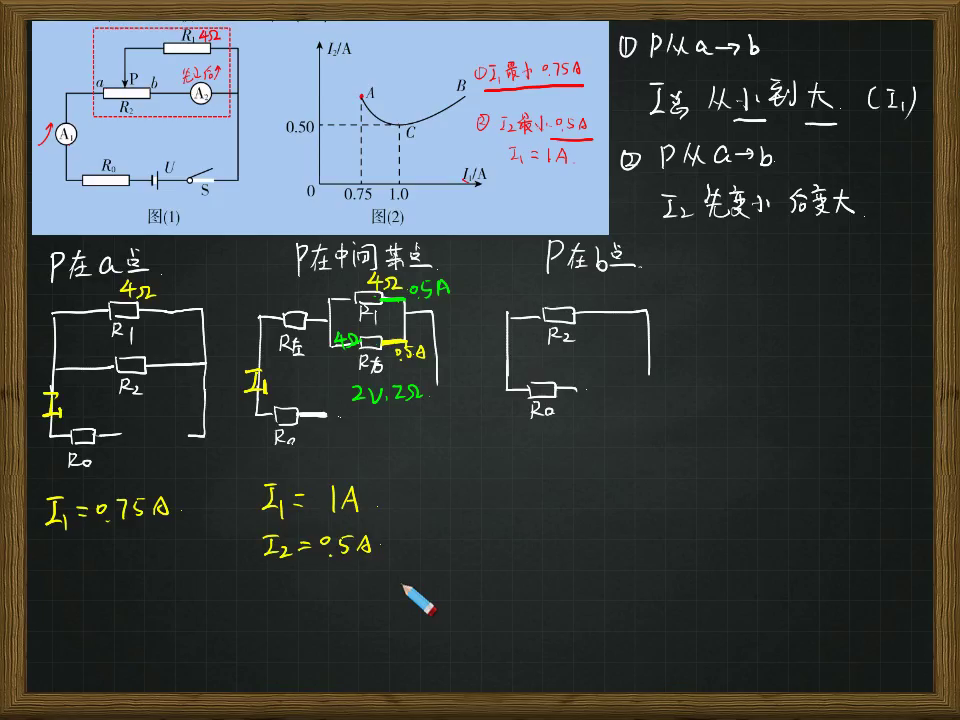 R₁ 4Ω
a P b 先↓后↑
R₂ A₂
A₁
R₀ U S
图(1)
I₂/A
A B
0.50 C
0 0.75 1.0 I₁/A
图(2)
①I₁最小 0.75A
② I₂最小 0.5A
I₁ = 1A
① P从a→b
I总 从小到大 (I₁)
② P从a→b
I₂ 先变小 后变大
P在a点
4Ω
R₁
R₂
I₁
R₀
I₁=0.75A
P在中间某点
4Ω 0.5A
R₁
R左 4Ω R右 0.5A
I₁ 2V.2Ω
R₀
I₁= 1A
I₂=0.5A
P在b点
R₂
R₀